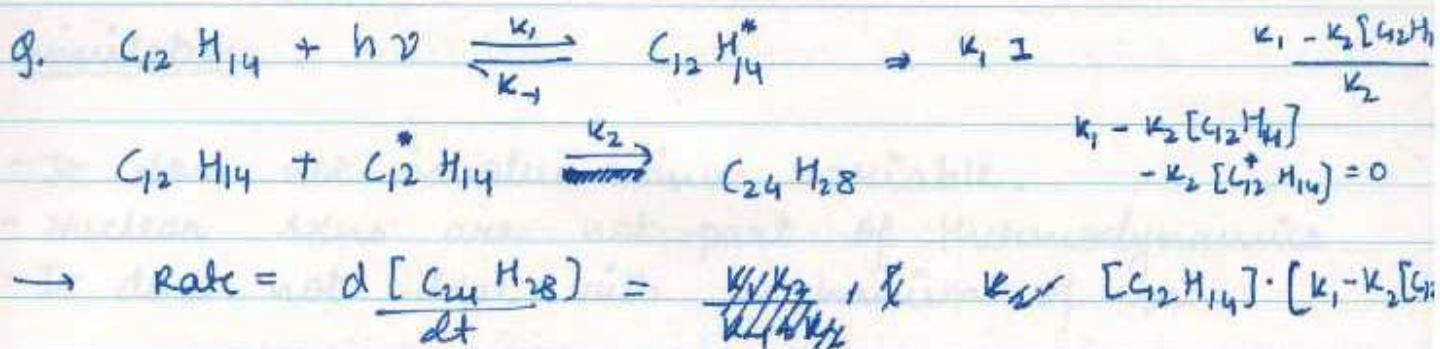 g. C₁₂H₁₄ + hν ⇌ C₁₂H₁₄* ⇒ K₁ I
K₁
K₋₁
K₁ - K₂[C₁₂H₁
K₂
C₁₂H₁₄ + C₁₂*H₁₄ → C₂₄H₂₈
K₂
K₁ - K₂[C₁₂H₁₄]
- K₂[C₁₂*H₁₄] = 0
→ Rate = d[C₂₄H₂₈] / dt = K₂ [C₁₂H₁₄]·[K₁-K₂[C₁₂